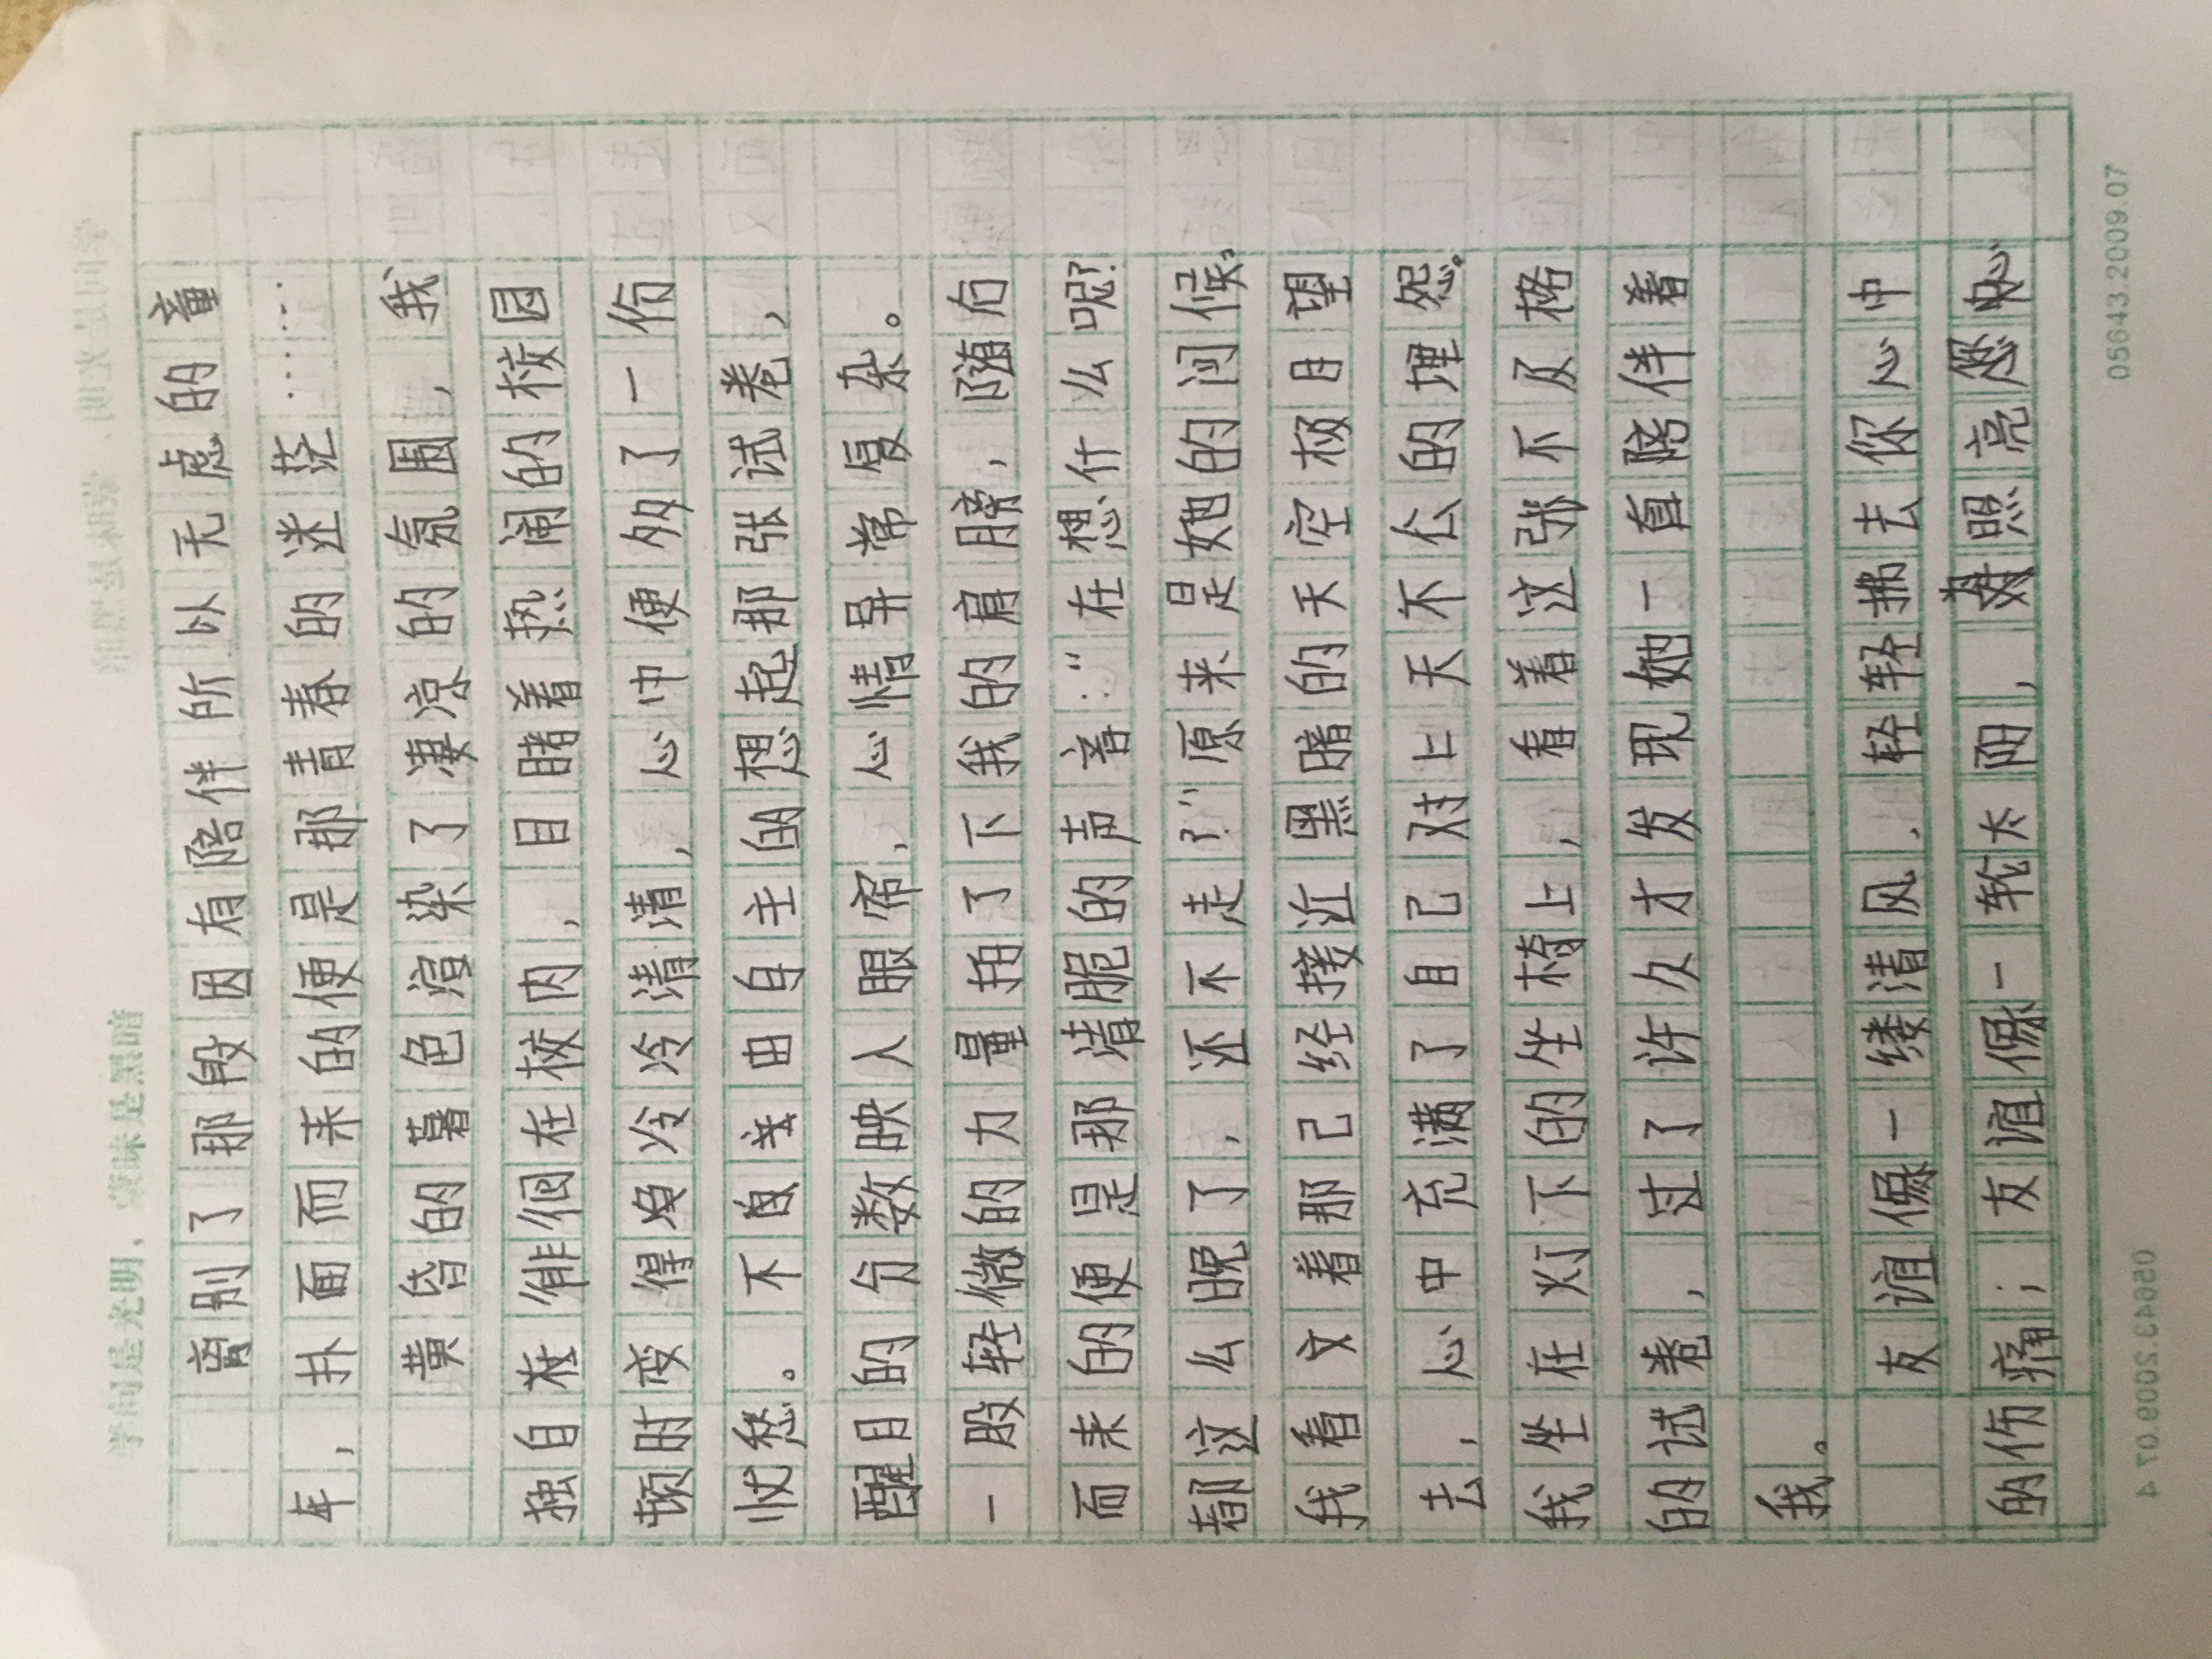 离别了那段因有陪伴所以无虑的童
年，扑面而来的便是那青春的迷茫……
黄昏的暮色渲染了凄凉的氛围，我
独自徘徊在校内，目睹着热闹的校园
顿时变得冷冷清清，心中便多了一份
忧愁。不由自主的想起那张试卷，
醒目的分数映入眼帘，心情异常复杂。
一股轻微的力量拍了下我的肩膀，随后
而来的便是那清脆的声音：“在想什么呢？
都这么晚了，还不走？”原来是她的问候。
我看着那已经接近黑暗的天空极目望
去，心中充满了自己对上天不公的埋怨。
我坐在灯下的坐椅上，看着这张不及格
的试卷，过了许久才发现她一直陪伴着
我。
友谊像一缕清风，轻轻拂去你心中
的伤痛；友谊像一轮太阳，照亮您
05643.2009.07